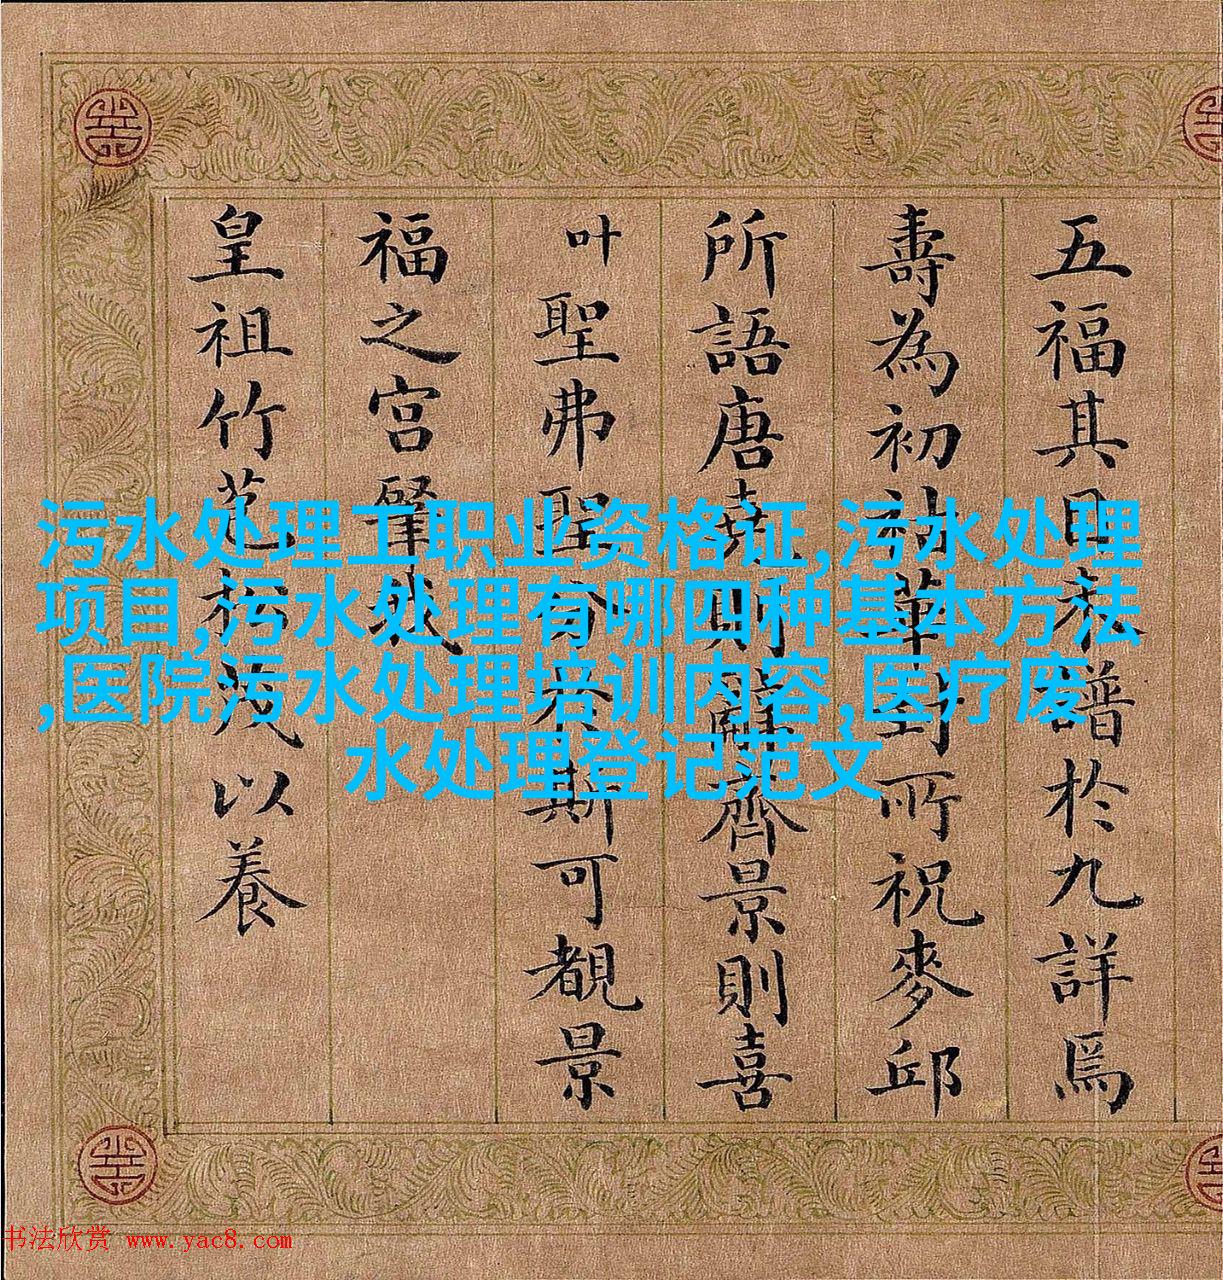 五福其目譜於九詳焉
壽為初祉華封所祝麥邱
所語唐堯則辭齊景則喜
叶聖弗聖分斯可覩景
福之宮肇
皇祖竹苞松茂以養
污水处理工职业资格证,污水处理
项目,污水处理有哪四种基本方法
,医院污水处理培训内容,医疗废
水处理登记范文
书法欣赏 www.yac8.com